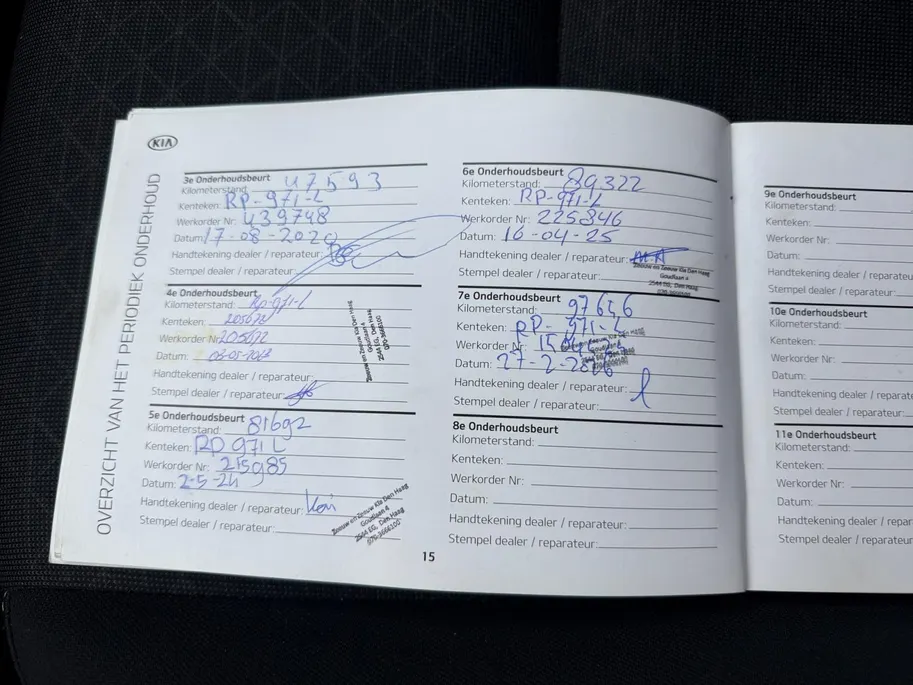 KIA
OVERZICHT VAN HET PERIODIEK ONDERHOUD
3e Onderhoudsbeurt
Kilometerstand: 47593
Kenteken: RP-971-L
Werkorder Nr: 439748
Datum: 17-08-2020
Handtekening dealer / reparateur:
Stempel dealer / reparateur:
4e Onderhoudsbeurt
Kilometerstand: RP-971-L
Kenteken:
Werkorder Nr:
Datum:
Handtekening dealer / reparateur:
Stempel dealer / reparateur:
Zeeuw en Zeeuw Kia Den Haag
Goudlaan 4
2544 EG, Den Haag
070-3666100
5e Onderhoudsbeurt
Kilometerstand: 81692
Kenteken: RP 971 L
Werkorder Nr: 215985
Datum: 2-5-24
Handtekening dealer / reparateur:
Stempel dealer / reparateur:
Zeeuw en Zeeuw Kia Den Haag
Goudlaan 4
2544 EG, Den Haag
070-3666100
15
6e Onderhoudsbeurt
Kilometerstand: 89322
Kenteken: RP-971-L
Werkorder Nr: 225846
Datum: 16-04-25
Handtekening dealer / reparateur:
Stempel dealer / reparateur:
Zeeuw en Zeeuw Kia Den Haag
Goudlaan 4
2544 EG, Den Haag
070-3666100
7e Onderhoudsbeurt
Kilometerstand: 97656
Kenteken: RP-971-L
Werkorder Nr:
Datum: 27-2-
Handtekening dealer / reparateur:
Stempel dealer / reparateur:
8e Onderhoudsbeurt
Kilometerstand:
Kenteken:
Werkorder Nr:
Datum:
Handtekening dealer / reparateur:
Stempel dealer / reparateur:
9e Onderhoudsbeurt
Kilometerstand:
Kenteken:
Werkorder Nr:
Datum:
Handtekening dealer / repara
Stempel dealer / reparateur
10e Onderhoudsbeurt
Kilometerstand:
Kenteken:
Werkorder Nr:
Datum:
Handtekening dealer / repara
Stempel dealer / reparateur:
11e Onderhoudsbeurt
Kilometerstand:
Kenteken:
Werkorder Nr:
Datum:
Handtekening dealer / repar
Stempel dealer / reparateur: